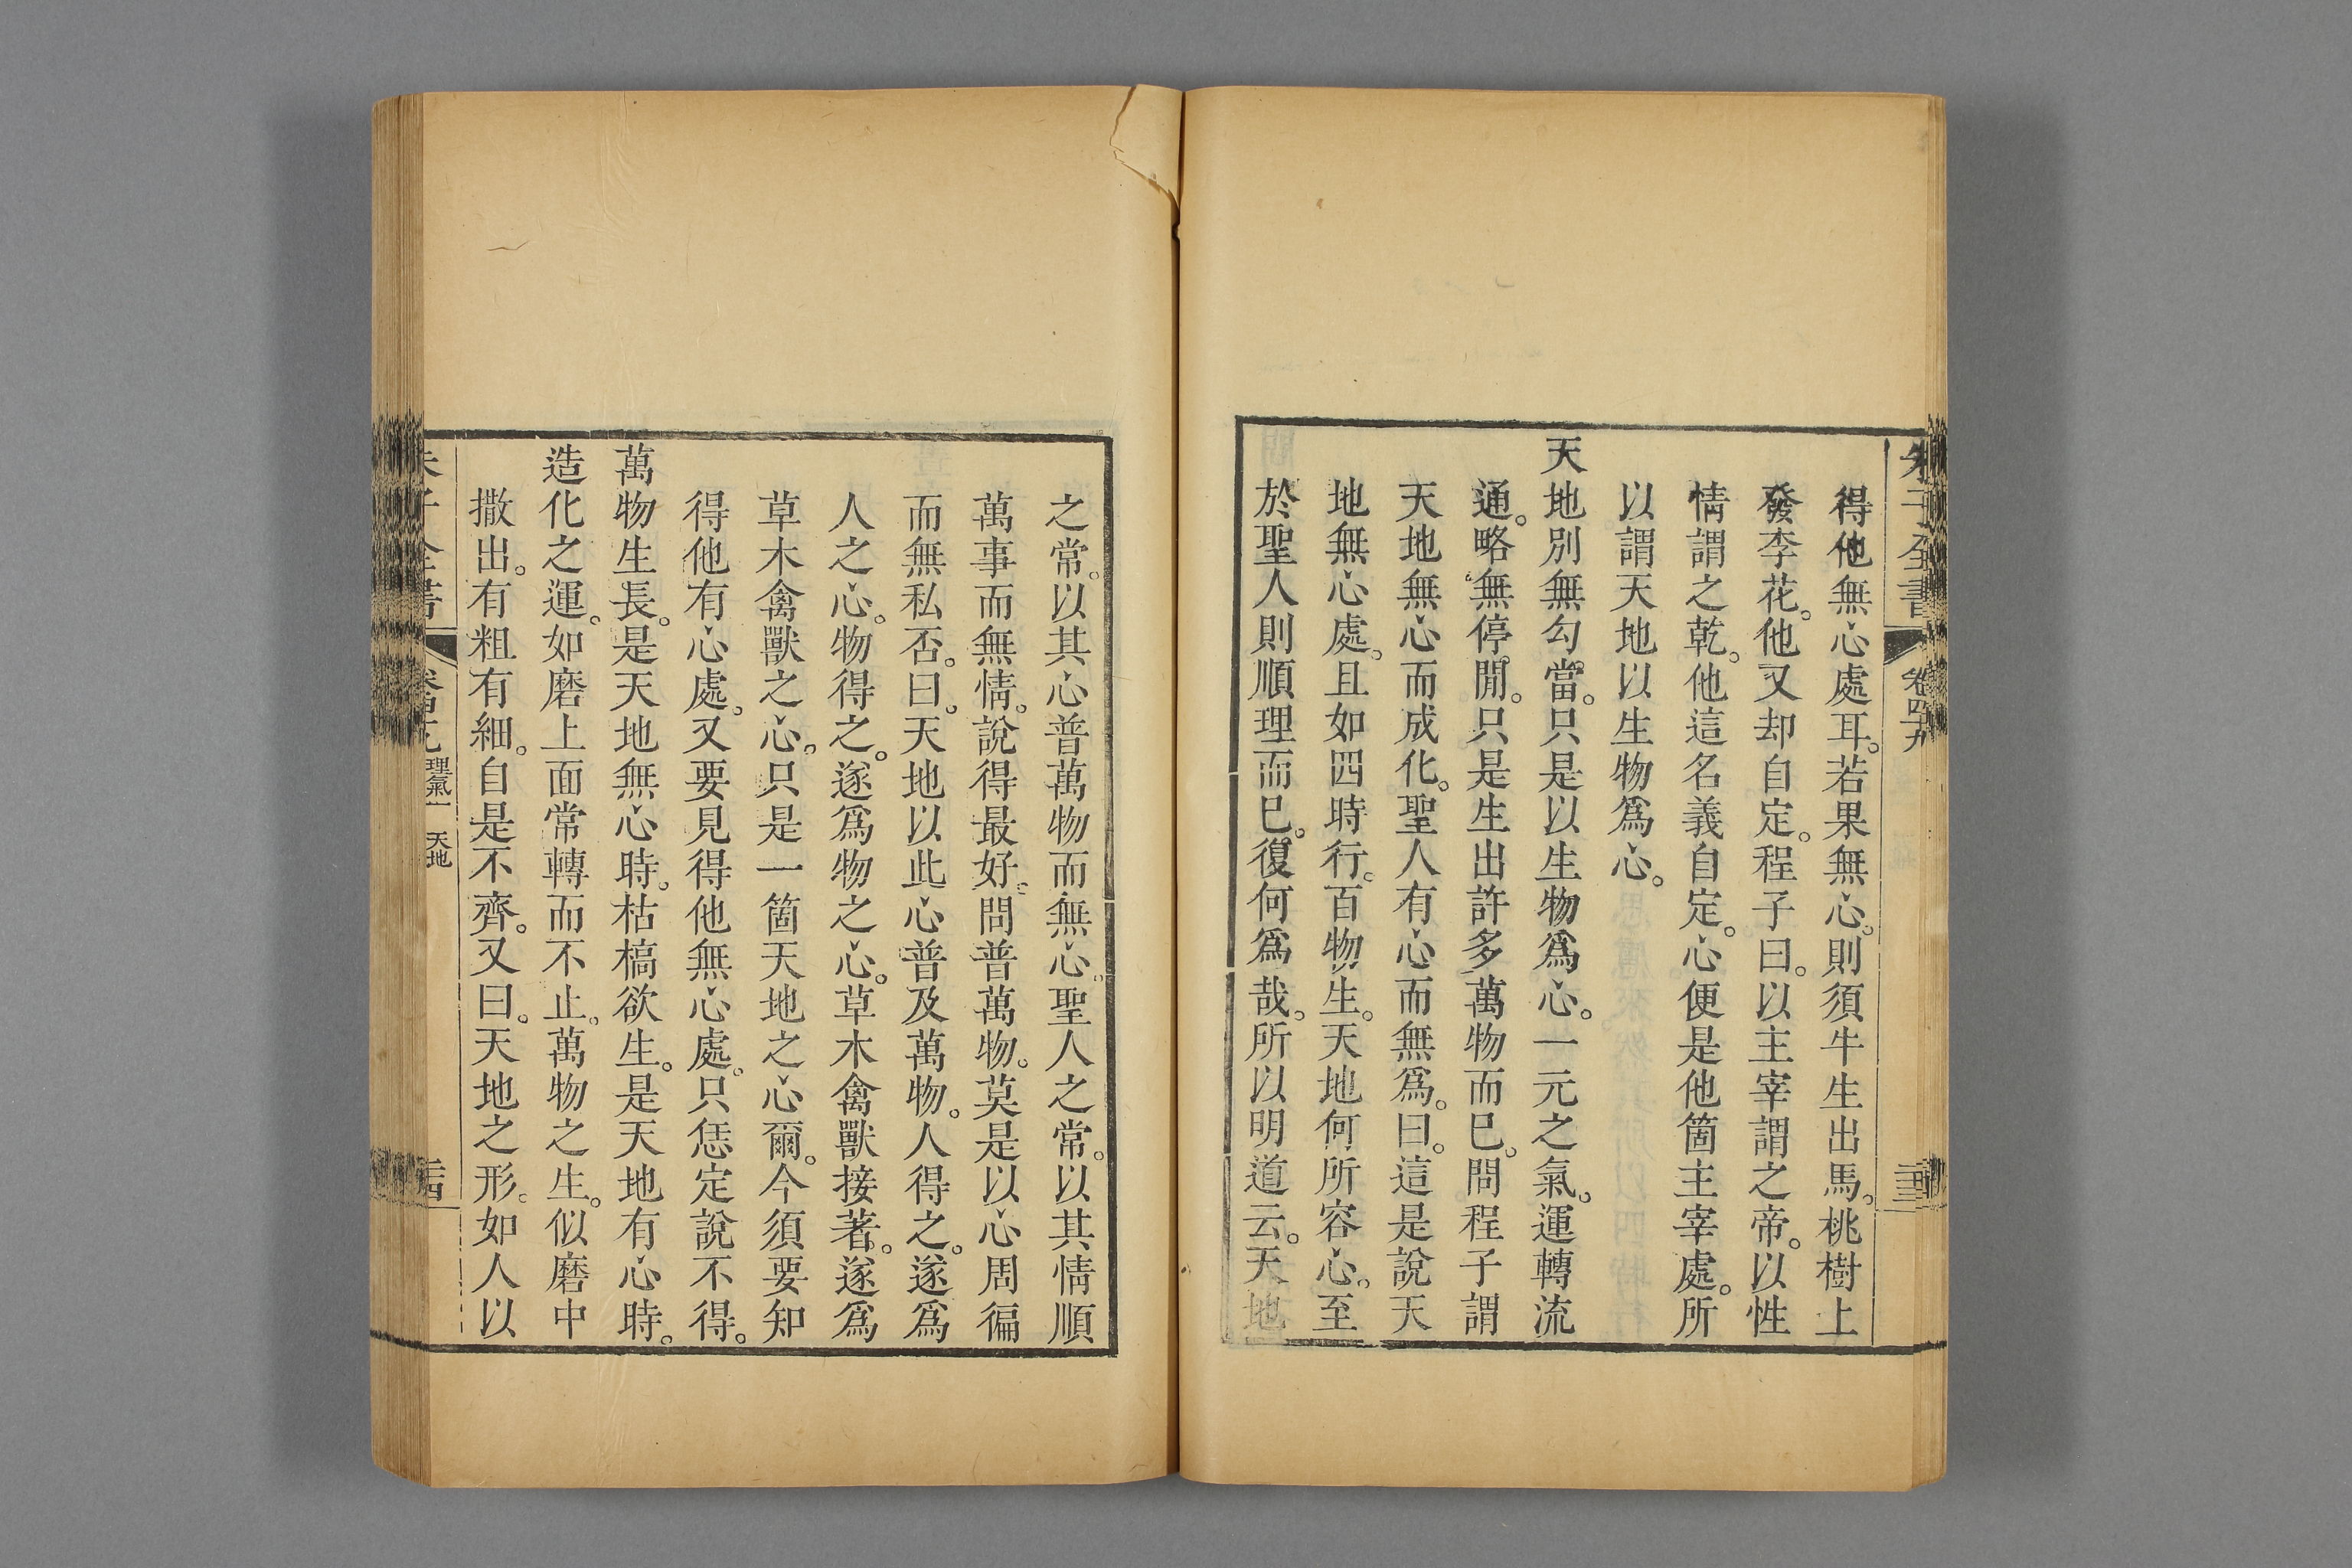 得他無心處耳。若果無心。則須牛生出馬。桃樹上
發李花。他又却自定。程子曰。以主宰謂之帝。以性
情謂之乾。他這名義自定。心便是他箇主宰處。所
以謂天地以生物爲心。
天地別無勾當。只是以生物爲心。一元之氣。運轉流
通。略無停閒。只是生出許多萬物而已。問程子謂
天地無心而成化。聖人有心而無爲。曰。這是說天
地無心處。且如四時行。百物生。天地何所容心。至
於聖人則順理而已。復何爲哉。所以明道云。天地
之常。以其心普萬物而無心。聖人之常。以其情順
萬事而無情。說得最好。問普萬物。莫是以心周徧
而無私否。曰。天地以此心普及萬物。人得之。遂爲
人之心。物得之。遂爲物之心。草木禽獸接著。遂爲
草木禽獸之心。只是一箇天地之心爾。今須要知
得他有心處。又要見得他無心處。只恁定說不得。
萬物生長。是天地無心時。枯槁欲生。是天地有心時。
造化之運。如磨上面常轉而不止。萬物之生。似磨中
撒出。有粗有細。自是不齊。又曰。天地之形。如人以
子全書
卷四十九
理氣一 天地